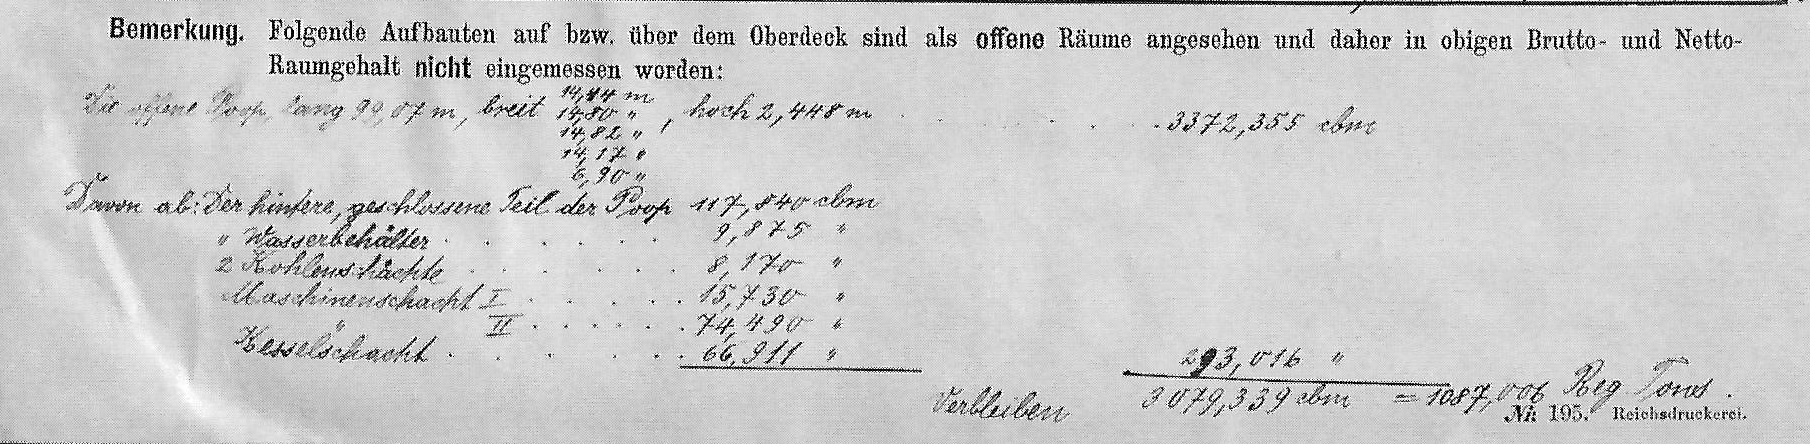 Bemerkung. Folgende Aufbauten auf bzw. über dem Oberdeck sind als offene Räume angesehen und daher in obigen Brutto- und Netto-
Raumgehalt nicht eingemessen worden:
Die offene Poop, lang 99,07 m, breit 14,14 m, hoch 2,448 m . . . . 3372,355 cbm
14,80 "
14,82 "
14,17 "
6,90 "
Davon ab: Der hintere, geschlossene Teil der Poop 117,840 cbm
" Wasserbehälter . . . . . . 9,875 "
2 Kohlenschächte . . . . . 8,170 "
Maschinenschacht I . . . . . 15,730 "
" II . . . . . . 74,490 "
Kesselschacht . . . . . 66,911 " 293,016 "
Verbleiben 3079,339 cbm = 1087,006 Reg. Tons.
Nr. 195. Reichsdruckerei.